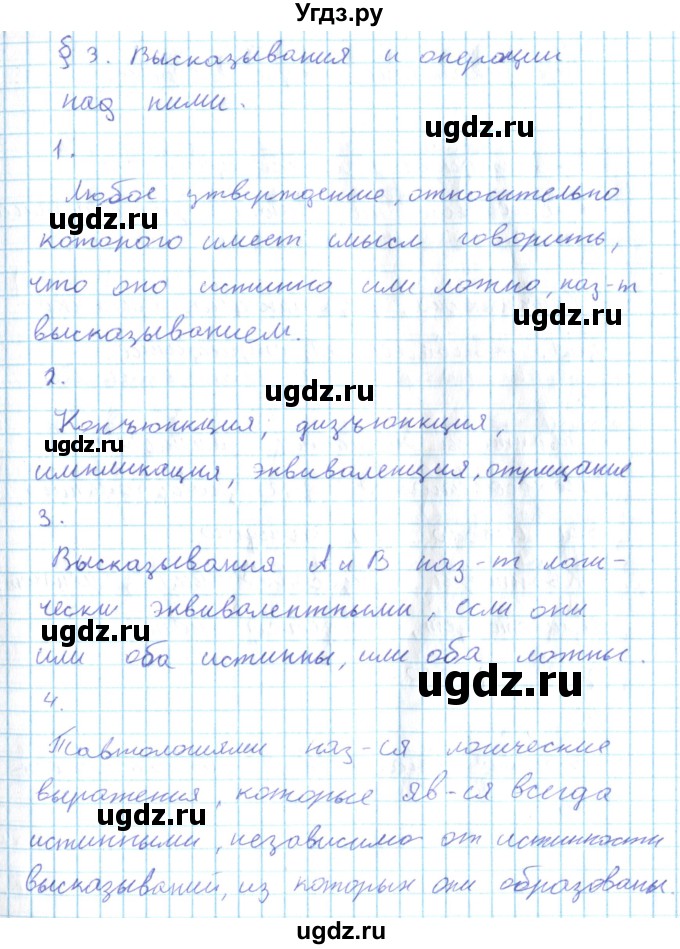 Угдз.ру
§ 3. Высказывания и операции
над ними.
ugdz.ru
1.
Любое утверждение, относительно
ugdz.ru
которого имеет смысл говорить,
что оно истинно или ложно, наз-т
ugdz.ru
высказыванием.
2.
ugdz.ru
Конъюнкция, дизъюнкция,
ugdz.ru
импликация, эквиваленция, отрицание
3.
ugdz.ru
Высказывания A и B наз-т логи-
чески эквивалентными, если они
ugdz.ru
или оба истинны, или оба ложны.
ugdz.ru
4.
Тавтологиями наз-ся логические
выражения, которые яв-ся всегда
ugdz.ru
истинными, независимо от истинности
ugdz.ru
высказываний, из которых они образованы.
ugdz.ru